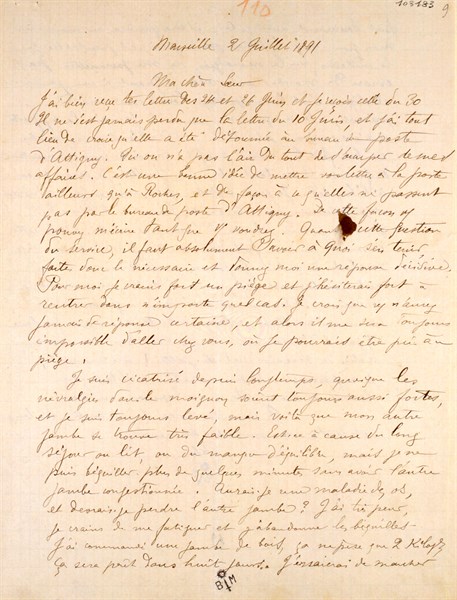 110
103183
9
Marseille 2 Juillet 1891
Ma chère Sœur
J'ai bien reçu tes lettres des 24 et 26 Juin et je reçois celle du 30
Il ne s'est jamais perdu que la lettre du 10 Juin, et j'ai tout
lieu de croire qu'elle a été détournée au bureau de poste
d'Attigny. Ici on n'a pas l'air du tout de s'occuper de mes
affaires. C'est une bonne idée de mettre vos lettres à la poste
ailleurs qu'à Roches, et de façon à ce qu'elles ne passent
pas par le bureau de poste d'Attigny. De cette façon vs
pouvez m'écrire tant que vs voudrez. Quant à cette question
du service, il faut absolument savoir à quoi s'en tenir,
faite donc le nécessaire et donnez moi une réponse décisive.
Pour moi je crains fort un piège et j'hésiterai fort à
rentrer dans n'importe quel cas. Je crois que vs n'aurez
jamais de réponse certaine, et alors il me sera toujours
impossible d'aller chez vous, où je pourrais être pris au
piège.
Je suis cicatrisé depuis longtemps, quoique les
névralgies dans le moignon soient toujours aussi fortes,
et je suis toujours levé, mais voilà que mon autre
jambe se trouve très faible. Est-ce à cause du long
séjour au lit, ou du manque d'équilibre, mais je ne
puis béquiller plus de quelques minutes sans avoir l'autre
jambe congestionnée. Aurais-je une maladie des os,
et devrais-je perdre l'autre jambe? J'ai très peur,
je crains de me fatiguer et j'abandonne les béquilles
J'ai commandé une jambe de bois, ça ne pèse que 2 Kilogs
ça sera prêt dans huit jours. J'essaierai de marcher
BM